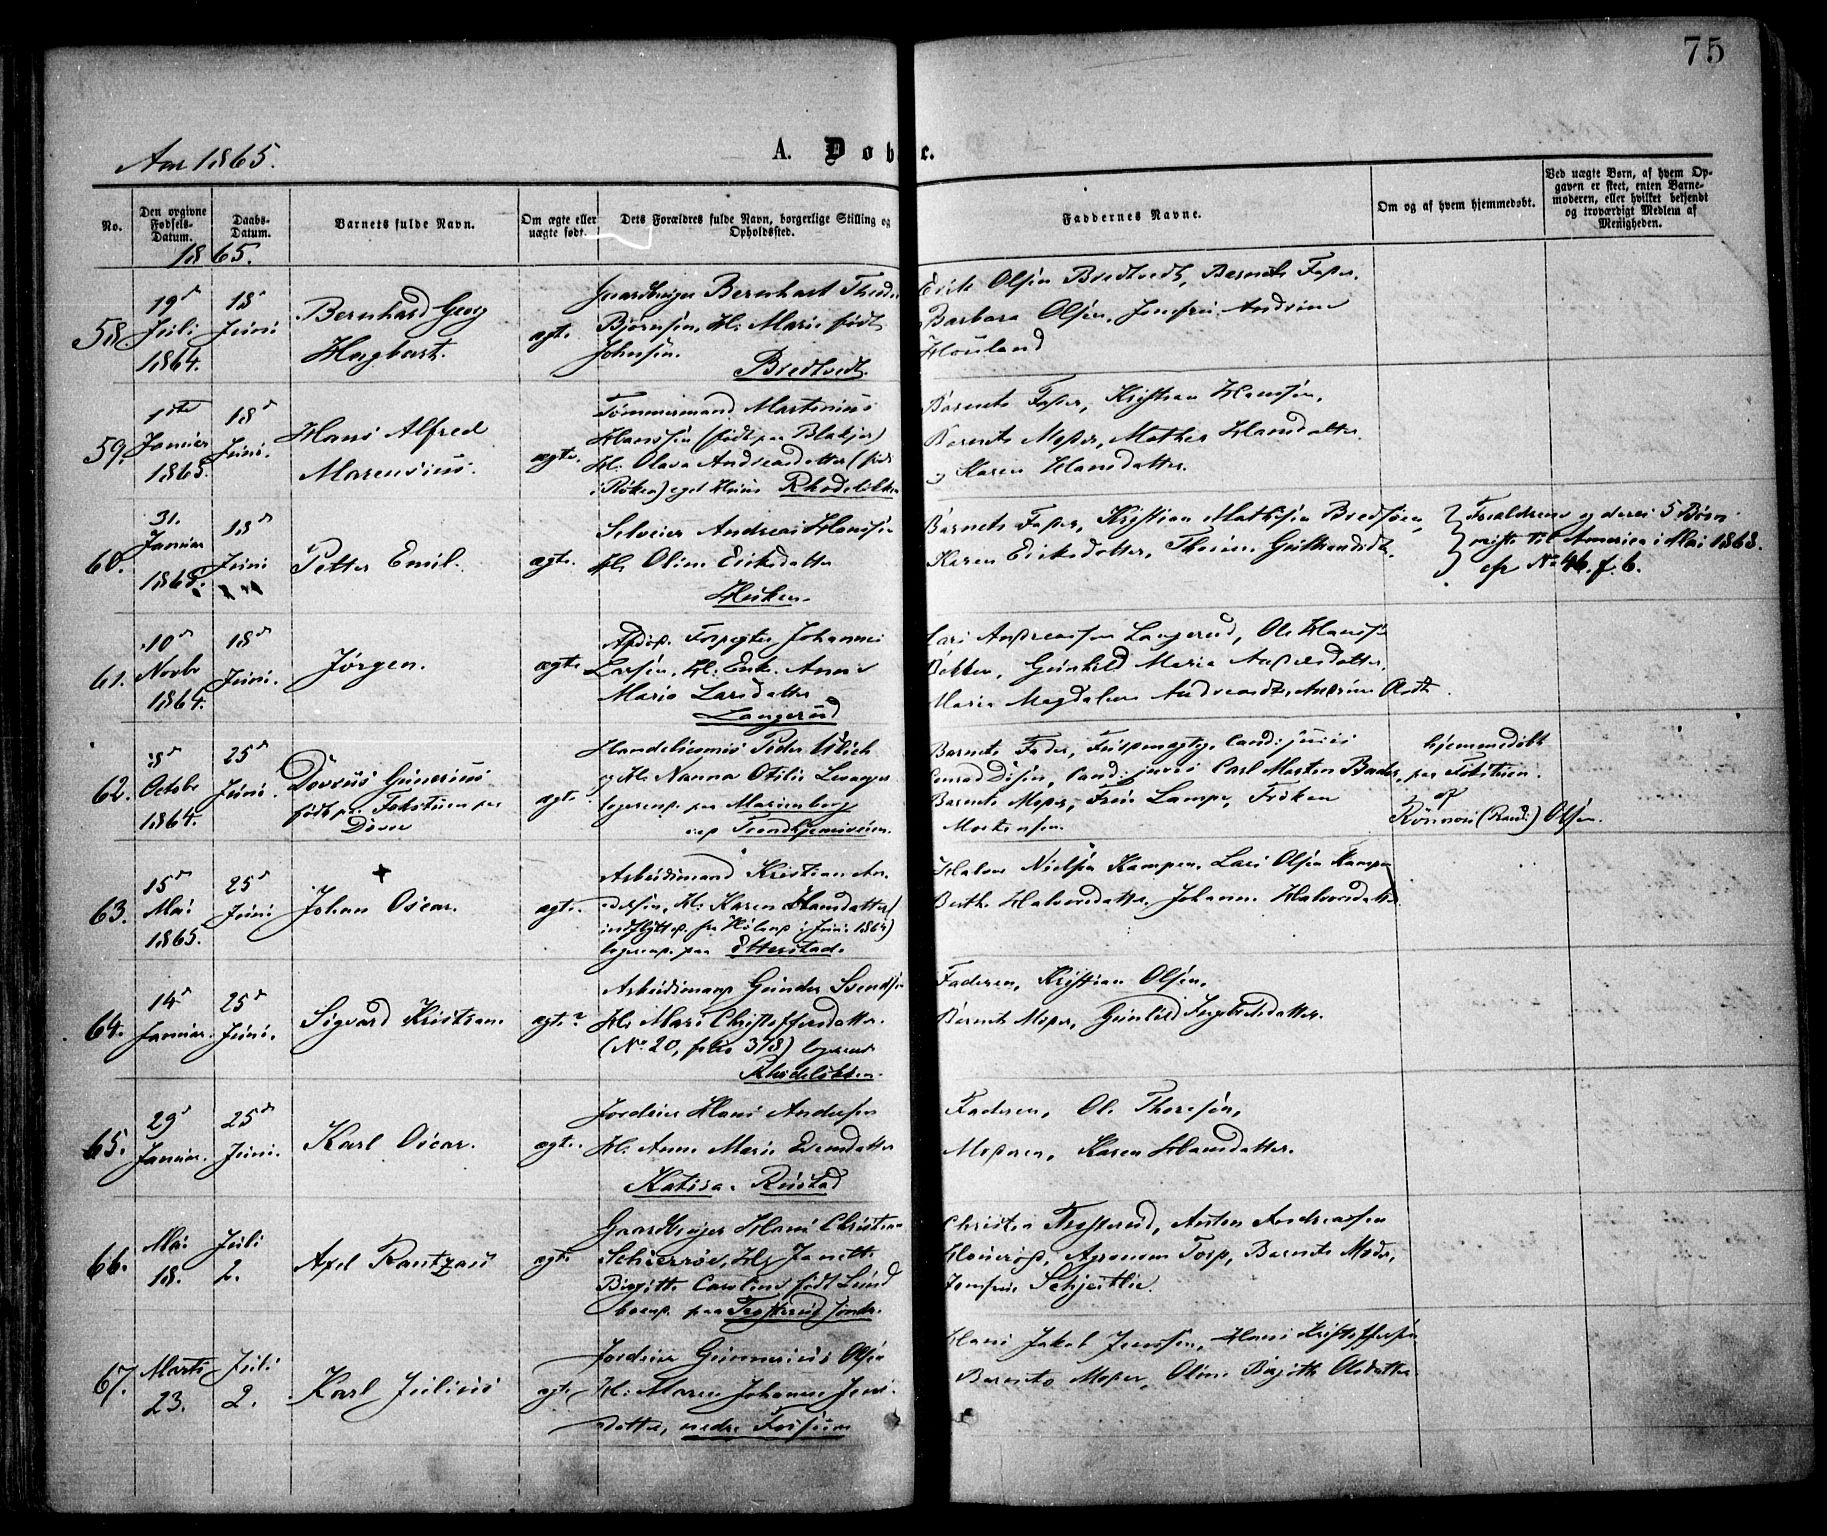 75
Aar 1865.
A. Døbte.
No.
Den opgivne Fødsels-Datum.
Daabs-Datum.
Barnets fulde Navn.
Om ægte eller uægte født.
Dets Forældres fulde Navn, borgerlige Stilling og Opholdssted.
Faddernes Navne.
Om og af hvem hjemmedøbt.
Ved uægte Børn, af hvem Opgaven er skeet, enten Barnemoderen, eller hvilket bekjendt og troværdigt Medlem af Menigheden.
1865.
58.
19d Juli 1864.
18d Juni
Bernhard Georg
Hagbart.
ægte.
Gaardbruger Bernhart Theodor
Bjørnsen, H. Marie født
Johnsen.
Bredtvedt.
Erik Olsen Bredtvedt, Barnets Fader,
Barbara Olsen, Jomfru Andrine
Houland
59.
1ste Januar 1865.
18d Juni.
Hans Alfred
Marensius.
ægte.
Tømmermand Martinius
Hanssen (født paa Blakjer)
H. Olava Andreasdatter (født
i Røken) eget Huus Rhodeløkken
Barnets Fader, Kristian Hanssen,
Barnets Moder, Mathea Hansdatter
og Karen Hansdatter.
60.
31. Januar 1865.
18d Juni
Petter Emil.
ægte.
Selveier Andreas Hanssen
H. Oline Eriksdatter
Huken.
Barnets Fader, Kristian Mathisen Bredsøen,
Karen Eriksdatter,
Forældrene og deres 5 Børn
reiste til America i Mai 1868.
cfr No 46. f. 6.
61.
10d Novbr 1864.
18d Juni.
Jørgen.
ægte
Afdød Forpagter Johannes
Larsen, H. Enke Anne
Marie Larsdatter
Langerud
Lars Andreassen Langerud, Ole Hanssen
Bekken, Gunhild Maria Andersdatter,
Maria Magdalena Andreasdtr,
62.
8d Octobr 1864.
25d Juni.
Dovrius Gunerius
født paa Fokstuen paa
Dovre
ægte
Handelsmand Peder Ulrich
og H. Nanna Otilie
logerende paa Marienborg
ved Trondhjemsveien.
Barnets Fader, Fuldmægtig Cand: juris
Conrad Disen, Cand: juris Carl Morten
Barnets Moder, Fru Lampe, Frøken
Mortensen.
hjemmedøbt
paa Fokstuen.
af
Rønnaug (Randi) Olsen.
63.
15d Mai 1865.
25d Juni
Johan Oscar.
ægte.
Arbeidsmand Kristian An-
dersen, H. Karen Hansdatter (
indflyttet fra Høland i Juni 1864)
logerende paa Etterstad.
Halvor Nielsen Kampen, Lars Olsen Kampen
Berthe Halvorsdatter, Johanne Halvorsdatter
64.
14d Januar.
25d Juni.
Sigvard Kristian.
ægte?
Arbeidsmand Gunder Svendsen
H. Mari Christoffersdatter.
(No 20, folio 378) logerende
Rhodeløkken.
Faderen, Kristian Olsen,
Barnets Moder, Gunhild Ingebretsdatter.
65.
29d Januar.
25d Juni.
Karl Oscar.
ægte.
Jordeier Hans Andersen
H. Anne Marie Evensdatter
Katisa. Rustad
Faderen, Ole Thoresen,
Moderen, Karen Hansdatter.
66.
Mai 18.
Juli 2.
Axel Rantzau
ægte
Gaardbruger Hans Christian
H. Janette
Birgitte Caroline født Lund
boende paa Trosterud søndre
Christen Trosterud, Anton Andreassen
Agronom Torp, Barnets Moder,
Jomfru Schjeitlie.
67.
Marts 23.
Juli 2.
Karl Julius
ægte
Jordeier Gunnerius Olsen
H. Maren Johanne Jens-
datter, nedre Fossum
Hans Jakob Jenssen, Hans Kristoffersen
Barnets Moder, Oline Birgithe Olsdatter